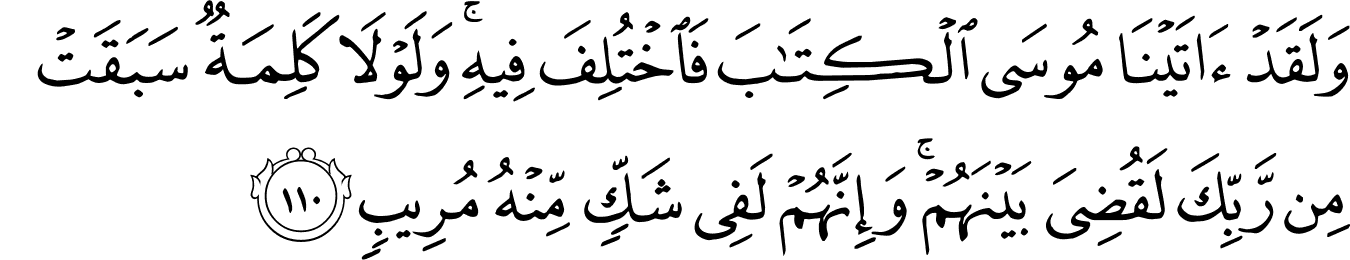 وَلَقَدۡ ءَاتَيۡنَا مُوسَى ٱلۡكِتَٰبَ فَٱخۡتُلِفَ فِيهِۚ وَلَوۡلَا كَلِمَةٞ سَبَقَتۡ
مِن رَّبِّكَ لَقُضِيَ بَيۡنَهُمۡۚ وَإِنَّهُمۡ لَفِي شَكّٖ مِّنۡهُ مُرِيبٖ ١١٠